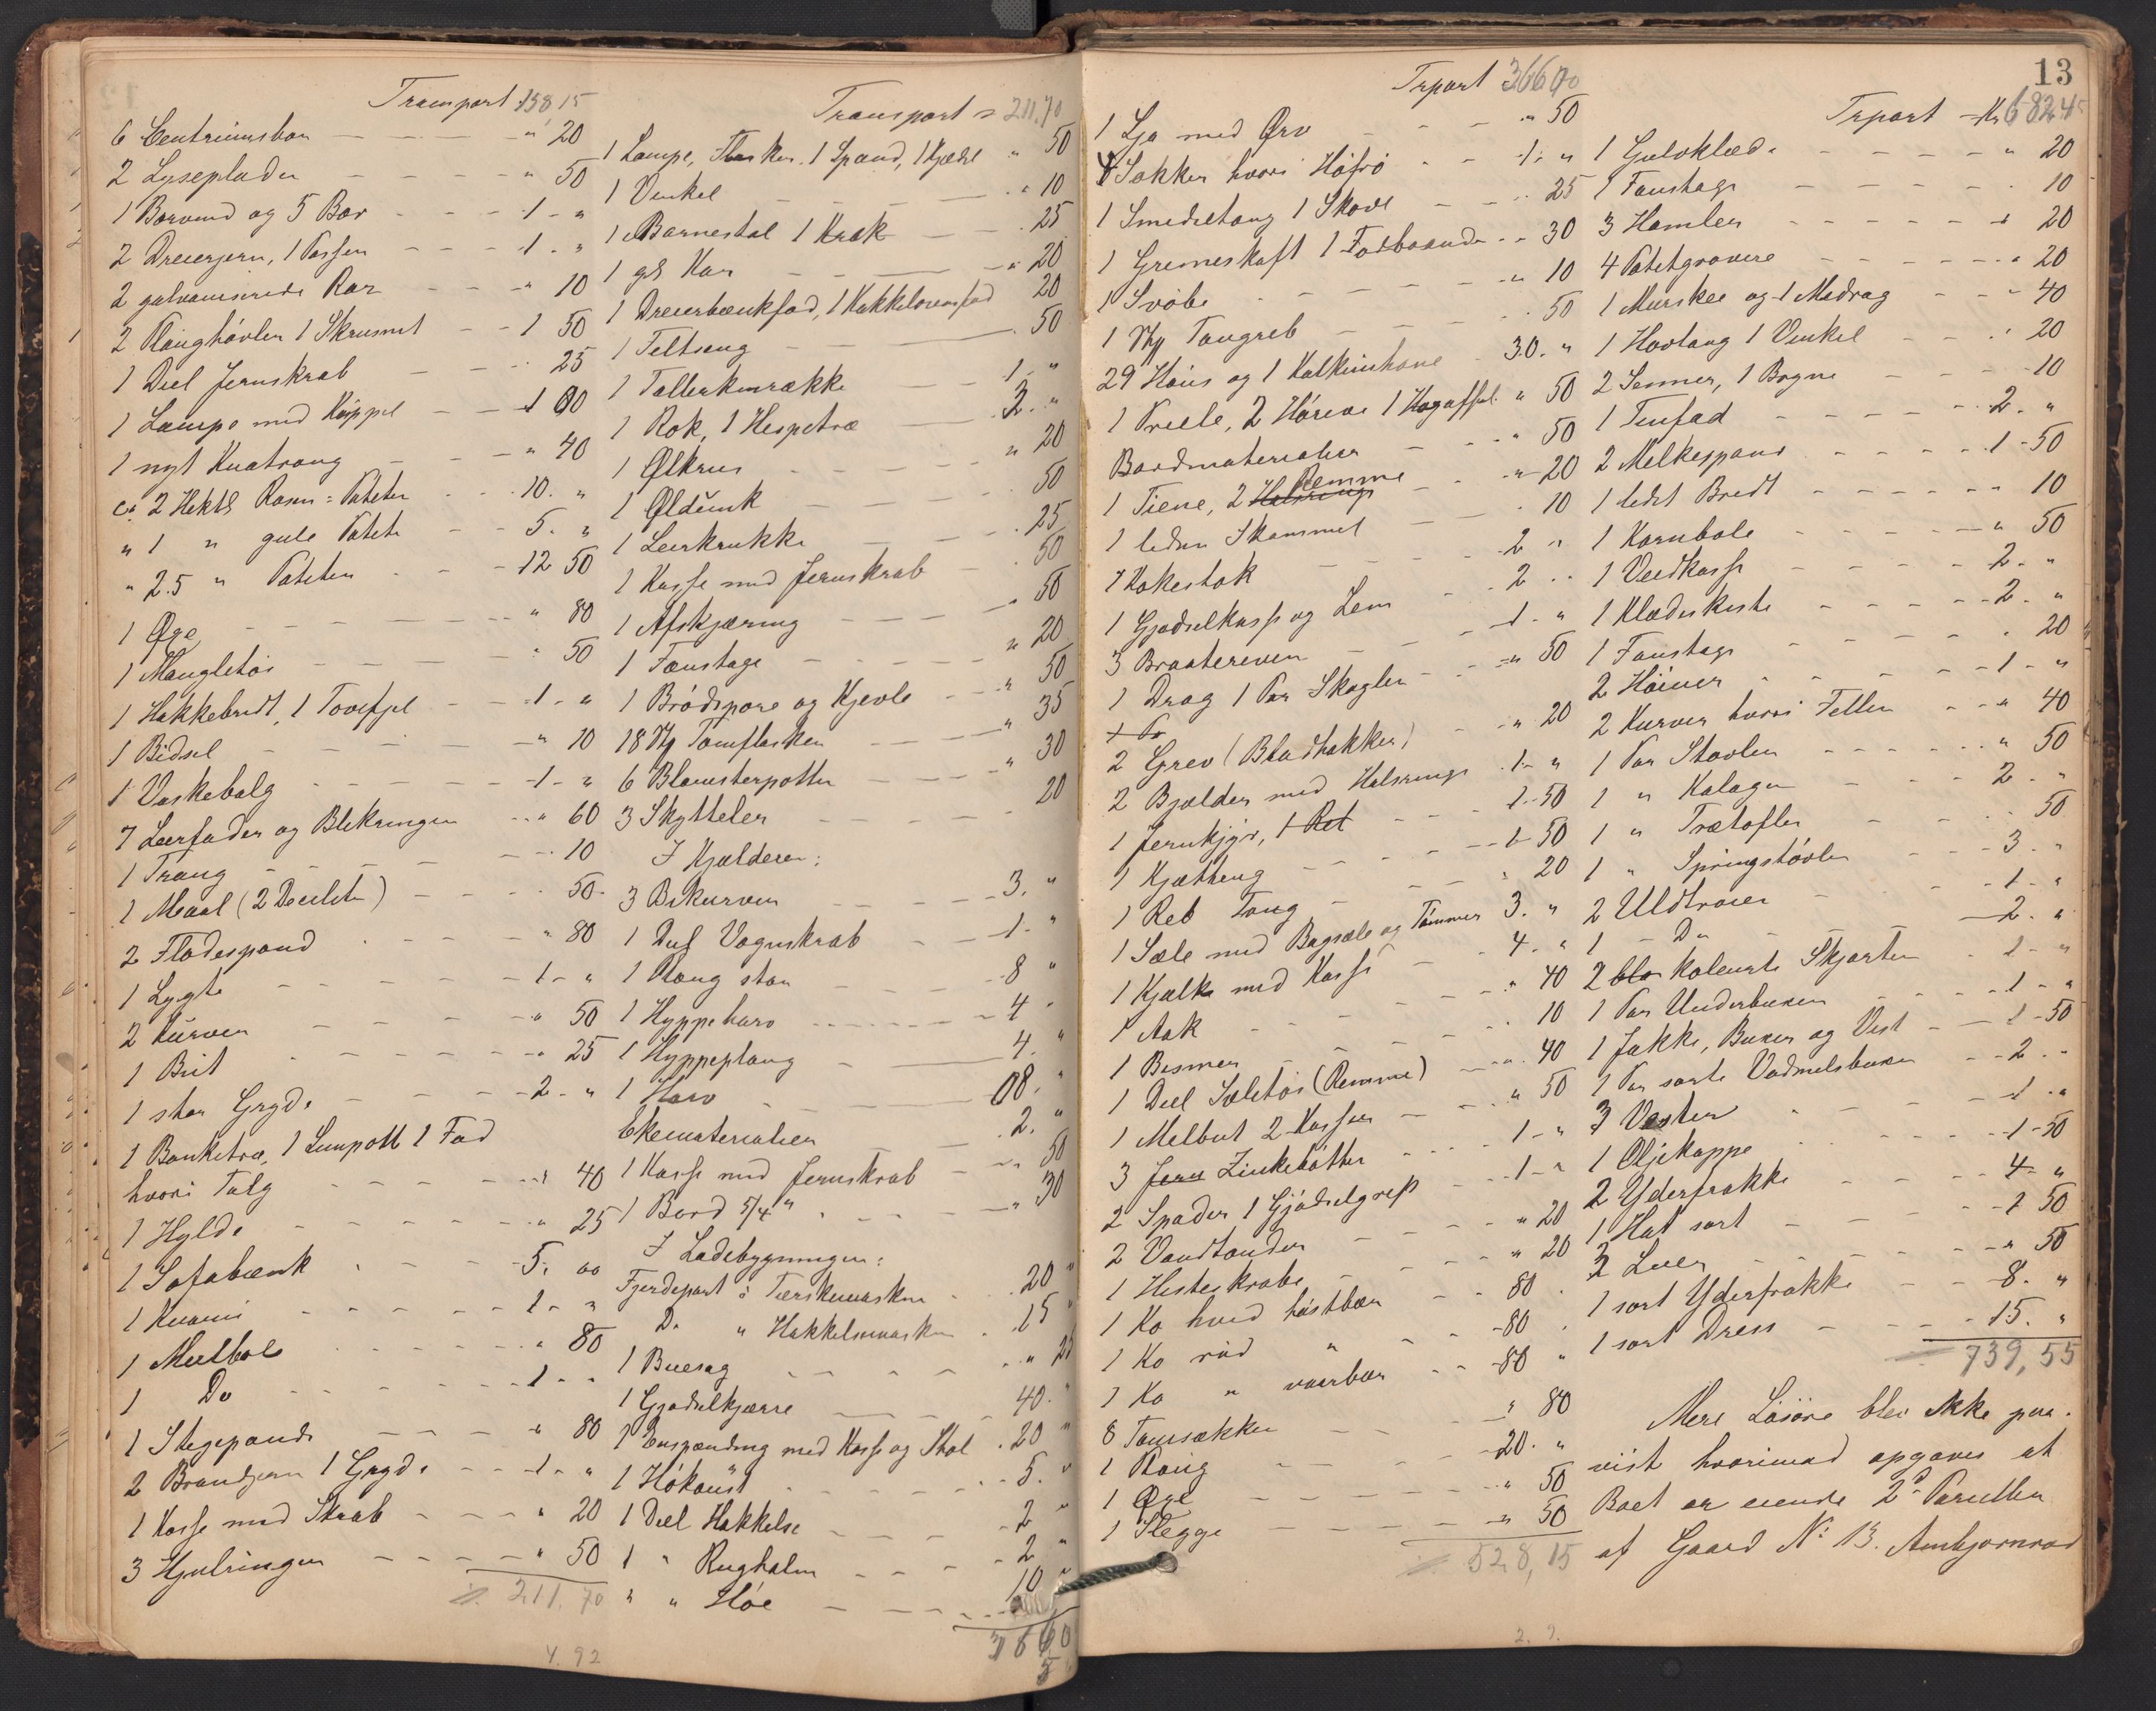 Transport 158 15
6 Centrumsbor - - - " 20
2 Lyseplader - - - " 50
1 Borvind og 5 Bor - - - 1 - "
2 Dreierjern, 1 Passer - - - 1 - "
2 galvaniserede Rør - - - " 10
2 Ploughøvler 1 Skrumet - - 1 50
1 Deel Jernskrab - - - 25
1 Lampe med Kuppel - - - 1 00
1 nyt Kvatrang - - - " 40
ca 2 Hektl Rosen = Poteter - - 10. "
" 1 " gule Potete - - 5. "
" 2.5 " Poteter - - - 12 50
1 Øxe - - - " 80
1 Mangletøi - - - " 50
1 Hakkebredt, 1 - - - 1 - "
1 Bidsel - - - " 10
1 Vaskebalg - - - 1 - "
7 Leerfader og Blikringer - - " 60
1 Trang - - - 10
1 Maal (2 Deciliter) - - - 50
2 Flødespand - - - " 80
1 Lygte - - - 1 - "
2 Kurver - - - " 50
1 Brit - - - " 25
1 stor Gryde - - - 2 - "
1 Banketræ, 1 Limpott 1 Fad
hvori Talg - - - " 40
1 Hylde - - - " 25
1 Sofabænk - - - 5, 00
1 Kværn - - - 1 - "
1 Melbole - - - " 80
1 Do - - - 1 - "
1 Stegepande - - - " 80
2 Brandjern 1 Gryde - - 1 - "
1 Kasse med Skrab - - - " 20
3 Hjulringer - - - " 50
211. 70
4. 92
Transport = 211.70
1 Lampe, Flasker. 1 Spand, 1 Kjedel " 50
1 Vinkel - - - " 10
1 Barnestol 1 Krak - - - 25
1 gl Kar - - - " 20
1 Dreierbænkfod, 1 Kakkelovnsfod 20
1 Feltseng - - - . 50
1 Tallerkenrække - - - 1. "
1 Rok, 1 Hespetræ - - - 3. "
1 Ølkrus - - - " 20
1 Øldunk - - - 50
1 Leerkrukke - - - . 25
1 Kasse med Jernskrab - - . 50
1 Afskjæring - - - " 50
1 Fanstage - - - " 20
1 Brødspore og Kjevle - - " 50
18 Stk Tomflasker - - - " 35
6 Blomsterpotter - - - " 30
3 Skytteler - - - 20
I Kjælderen:
3 Bikurver - - - 3. "
1 Deel Vognskrab - - - 1. "
1 Ploug stor - - - 8 "
1 Hyppeharv - - - 4 "
1 Hyppeploug - - - 4. "
1 Harv - - - 08. "
Ekematerialier - - - 2. "
1 Kasse med Jernskrab - - " 50
1 Bord 5/4" - - - " 30
I Ladebygningen:
Fjerdepart i Tærskemaskin - - 20 "
Do " Hakkelsmaskin - - 15 "
1 Buesag - - - " 25
1 Gjødselkjærre - - - 40. "
1 Enspænding med Kasse og Stol . 20 "
1 Høkaust - - - 5. "
1 Deel Hakkelse - - - 2 "
1 " Rughalm - - - 2 "
" " Høe - - - 10 "
366 60
5
Trport 366 70
1 Lja med Orv - - - " 50
8 Sækker hvori Høfrø - - 1. "
1 Smedetang 1 Skovl - - - 25
1 Gremeskaft 1 Fodbaand - - 30
1 Svøbe - - - " 10
1 Stk Tangreb - - - 50
29 Høns og 1 Kalkunhane - - 30. "
1 Kneele, 2 Høriver 1 Høgaffel " 50
Bordmaterialier - - - " 50
1 Tiene, 2 Halsringe Remme - - " 20
1 liden Skammel - - - 10
1 Kokestok - - - 2 "
1 Gjødselkasse og Lem - - 2 "
3 Braateriver - - - 1 - "
1 Drag 1 Par Skagler - - - " 50
1 Pr
2 Grev (Bladhakker) - - - " 20
2 Bjelder med Halsringe - - 1 - "
1 Jernkjør, 1 Ret - - - 1 - 50
1 Kjætting - - - 1 50
1 Reb Tang - - - " 20
1 Sæle med Bagsæle og Tømmer 3. "
1 Kjælke med Kasse - - - 4. "
1 Aak - - - " 40
1 Bismer - - - 10
1 Deel Seletøi (Remme) - - " 40
1 Melbut 2 Kasser - - - " 50
3 Jern Zinkebøtter - - - 1 - "
2 Spader 1 Gjødselgreb - - - 1 - "
2 Vandtønder - - - " 20
1 Hesteskrabe - - - " 20
1 Ko hvid høstbær - - 80 .
1 Ko rød " - - 80 .
1 Ko " vaarbær - - 80 "
8 Tomsækker - - - " 80
1 Ploug - - - 20. "
1 Øxe - - - " 50
1 Slegge - - - " 50
528,15
2. 9.
13
Trport - Kr 682 45
1 Gulvklæde - - - " 20
1 Fanstage - - - . 10
3 Hamler - - - " 20
4 Potetgravere - - - " 20
1 Murskee og 1 Madrag - - - 40
1 Hovtang 1 Vinkel - - - " 20
2 Lenner, 1 Bogne - - - 10
1 Tinfad - - - 2. "
2 Melkespand - - - 1 - 50
1 lidet Bredt - - - " 10
1 Kornbole - - - " 50
1 Vedkasse - - - 2. "
1 Klædeskiste - - - 2. "
1 Fanstage - - - . 20
2 Høiner - - - 1 - "
2 Kurver hvori Feller - - - " 40
1 Par Støvler - - - " 50
1 " Kalager - - - 2. "
1 " Trætøfler - - - . 50
1 " Springstøvler - - - 3. "
2 Uldtrøier - - - 1 - "
1 - Do - - - 2. "
2 blo kolerte Skjorter - - 1 - "
1 Par Underbuxer - - - 1 - "
1 Jakke, Buxer og Vest - - 1 - 50
1 Par sorte Vadmelsbuxer - - 2 . "
3 Vester - - - 1 . "
1 Oljekappe - - - 1 - 50
2 Yderfrakke - - - 4 - "
1 Hat sort - - - 1 50
2 Luer - - - " 50
1 sort Yderfrakke - - - 8. "
1 sort Dress - - - 15. "
739,55
Mere Løsøre blev ikke paa-
vist hvorimod opgaves at
Boet er eiende 2de Parceller
af Gaard No 13. Ambjørnrød